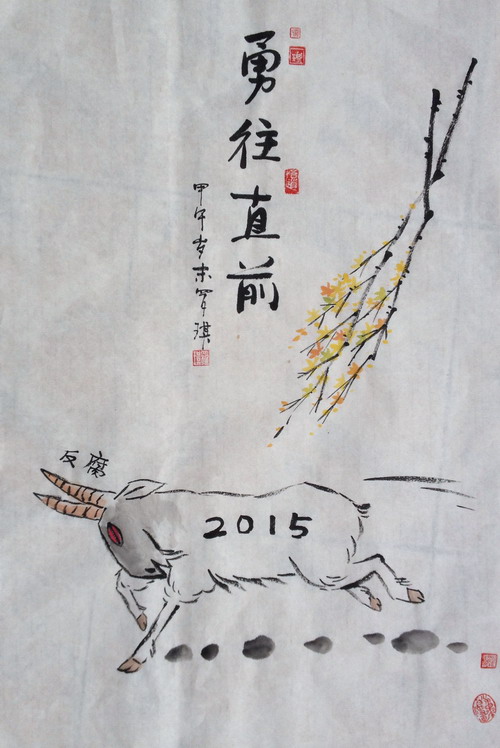 勇往直前
甲午岁末罗淇
反腐
2015